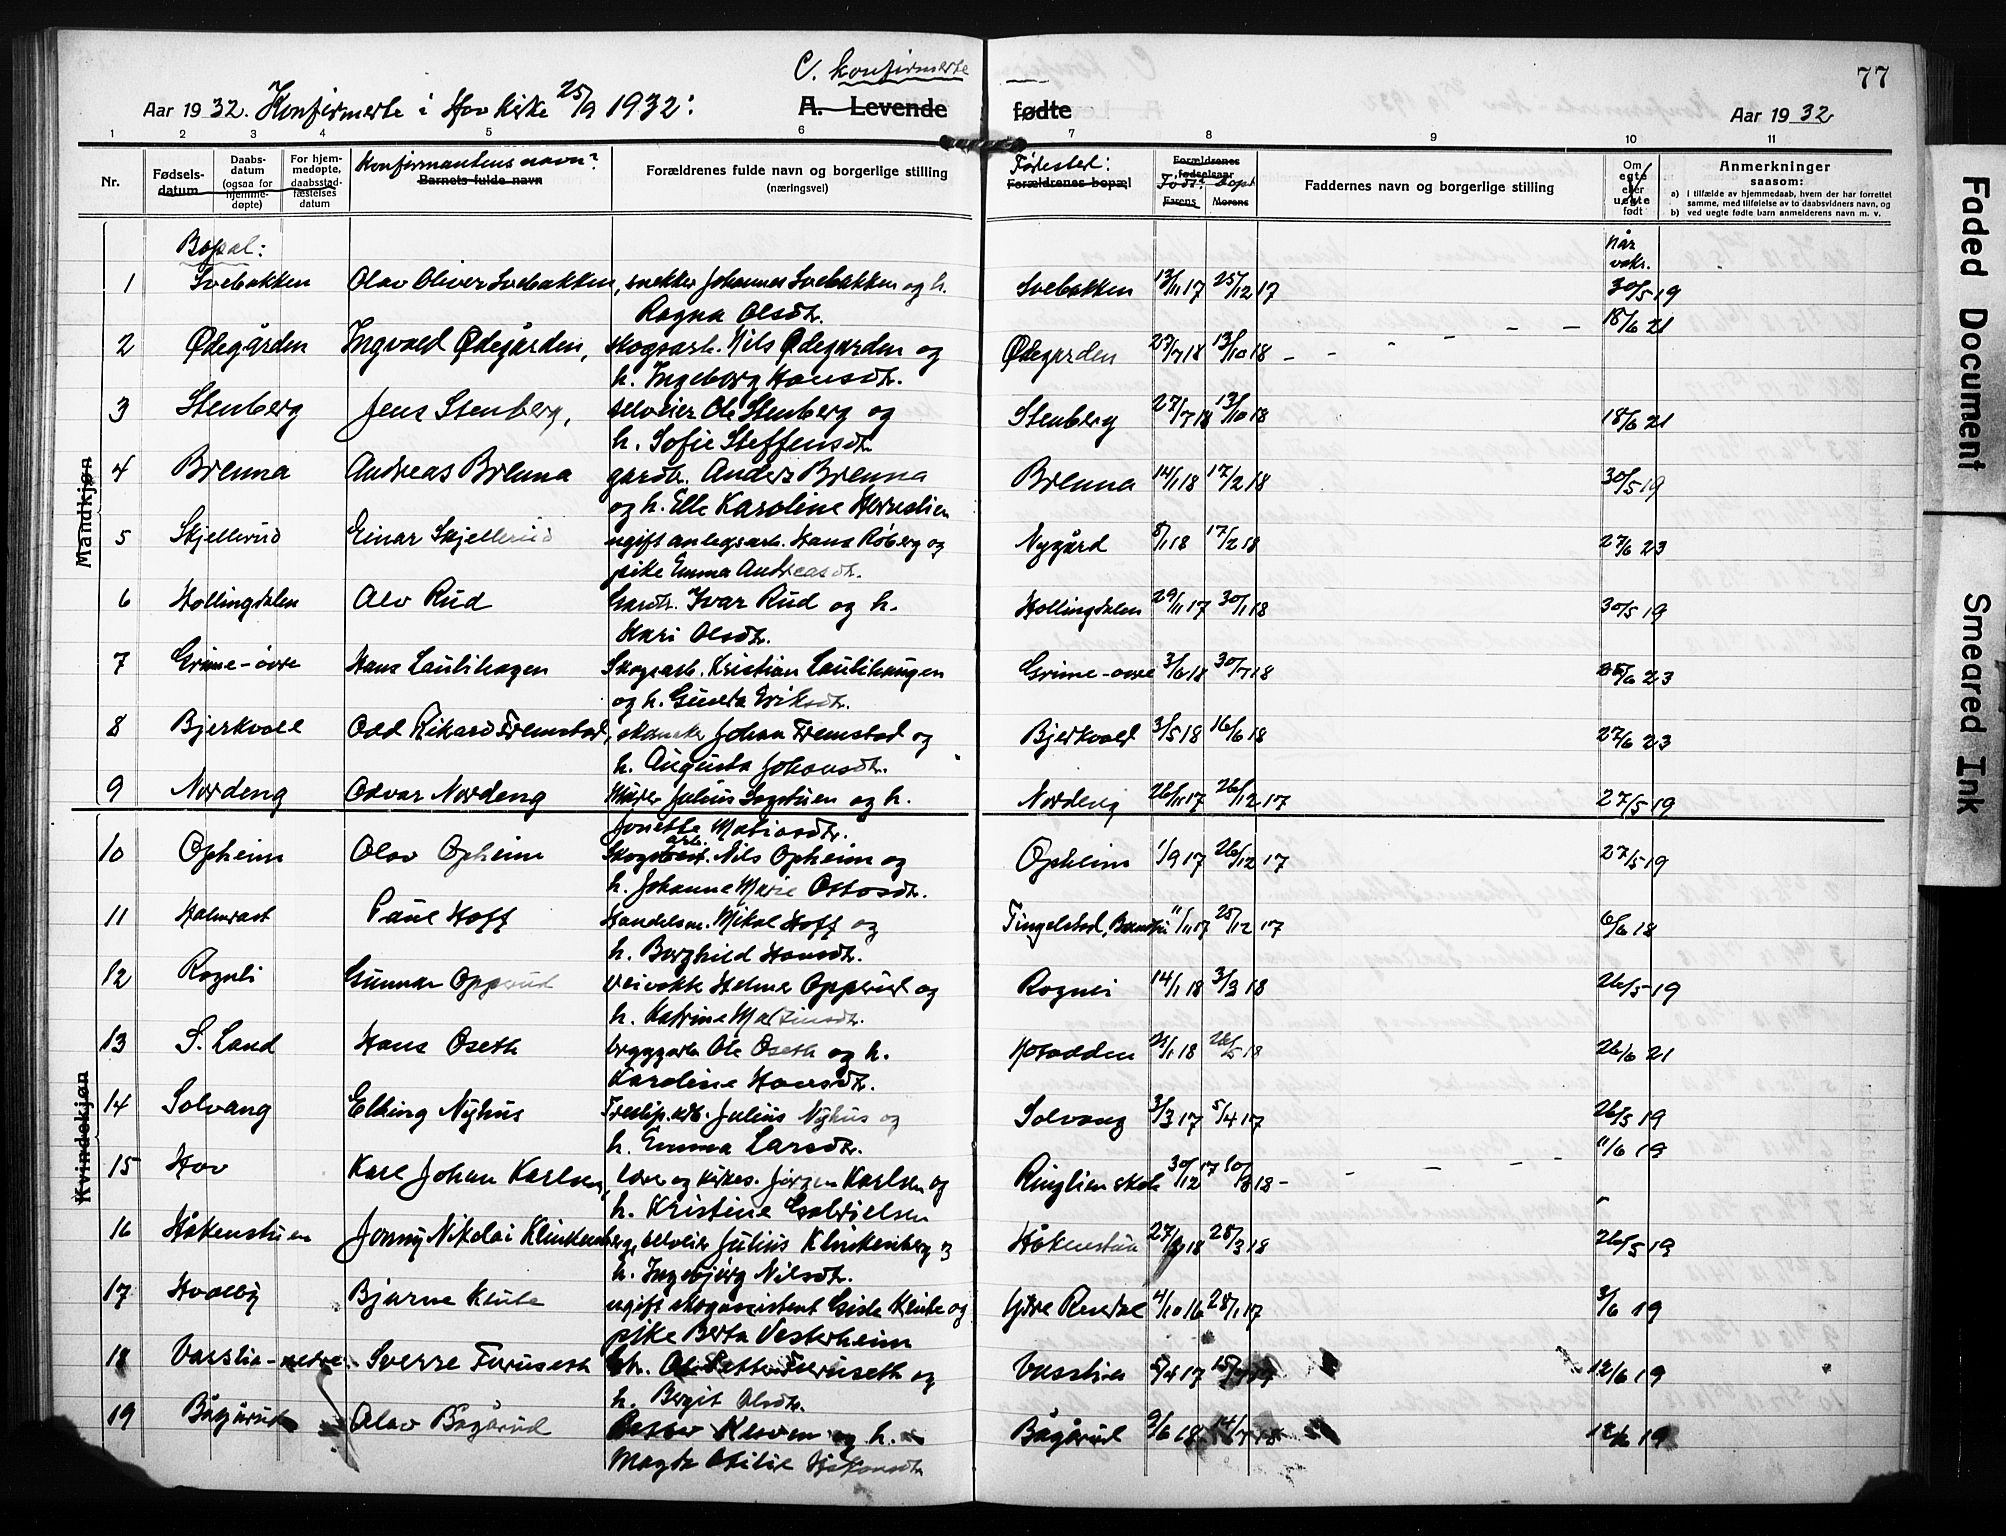 C. Konfirmerte
77
Aar 1932. Konfirmerte i Hov kirke 25/9 1932:
A. Levende fødte
Aar 1932
1 2 3 4 5 6 7 8 9 10 11
Nr.
Fødsels-datum
Daabs-datum (ogsaa for hjemme-døpte)
For hjem-medøpte, daabsstad-fæstelses datum
Konfirmantens navn:
Barnets fulde navn
Forældrenes fulde navn og borgerlige stilling (næringsvei)
Fødested:
Forældrenes bopæl
Forældrenes fødselsaar
Født: Døpt
Farens Morens
Faddernes navn og borgerlige stilling
Om egte eller uegte født
Anmerkninger saasom:
a) i tilfælde av hjemmedaab, hvem der har forrettet samme, med tilføielse av to daabsvidners navn, og
b) ved uegte fødte barn anmelderens navn m. v.
Bopæl:
Når vaks.
Mandkjøn
1 Svebakken Olav Oliver Svebakken, snekker Johannes Svebakken og h. Svebakken 13/11 17 25/12 17 30/5 19
Ragna Olsdtr. 18/6 21
2 Ødegården Ingvald Ødegården, skogsarb. Nils Ødegarden og Ødegarden 27/7 18 13/10 18
h. Ingeborg Hansdtr.
3 Stenberg Jens Stenberg, selveier Ole Stenberg og Stenberg 27/7 18 13/10 18 18/6 21
h. Sofie Steffensdtr
4 Brenna Andreas Brenna gardbr. Anders Brenna Brenna 14/1 18 17/2 18 30/5 19
og h. Elle Karoline
5 Skjellerud Einar Skjellerud ugift anlegsarb. Hans Røberg og Nygård 8/1 18 17/2 18 27/6 23
pike Emma Andreasdtr.
6 Hollingdalen Alv Rud Gardbr. Ivar Rud og h. Hollingdalen 29/11 17 30/1 18 30/5 19
Kari Olsdtr.
7 Grime-øvre Hans Laulihagen Skogsarb. Kristian Laulihaugen Grime-øvre 3/6 18 30/7 18 23
og h. Gunda Eriksdtr.
8 Bjerkvold Odd Rikard Fremstad, Johan Fremstad og Bjerkvold 3/5 18 16/6 18 27/6 23
h. Augusta Johansdtr.
9 Nordeng Odvar Nordeng Murer Julius Sogstuen og h. Nordeng 26/11 17 26/12 17 27/5 19
Jonette Matiasdtr.
Kvindekjøn
10 Opheim Olav Opheim Skogsarb. Nils Opheim og Opheim 1/9 17 26/12 17 27/5 19
h. Johanne Marie Ottosdtr.
11 Halmrast Paul Hoff Handelsm. Mikal Hoff og Tingelstad, 11/11 17 25/12 17 6/6 18
h. Borghild Hansdtr.
12 Rognli Gunnar Opperud Veivokter Helmer Opperud og Rognli 14/1 18 3/3 18 26/5 19
h. Katrine Martinsdtr.
13 S. Land Hans Oseth Ole Oseth og h. Notodden 21/1 18 26/5 18 26/6 21
Karoline Hansdtr.
14 Solvang Elling Nyhus Julius Nyhus og Solvang 3/3 17 5/4 17 26/5 19
h. Emma Larsdtr. 11/6 19
15 Hov Karl Johan Karlsen, lærer og kirkes. Jørgen Karlsen og Ringlien skole 30/12 17
h. Kristine Gabrielsen
16 Håkenstuen Jonny Nikolai Klinkenberg, selveier Julius Klinkenberg og Håkenstuen 27/ 18 28/3 18 26/5 19
h. Ingebjørg Nilsdtr.
17 Hvalby Bjarne Klute ugift skogassistent Gisle Klute og Ydre Rendal 4/10 16 28/1 17 3/6 19
pike Berta Vesterheim
18 Vasslia-nedre Sverre Furuseth Gbr. Ole Petter Furuseth og Vasslien 5/4 17 12/6 19
h. Bergit Olsdtr.
19 Bågårud Olav Bågårud Kloven og h. Bågårud 9/6 18 14/7 18 19
Magda Otilie Håkonsdtr
Faded Document
Smeared Ink